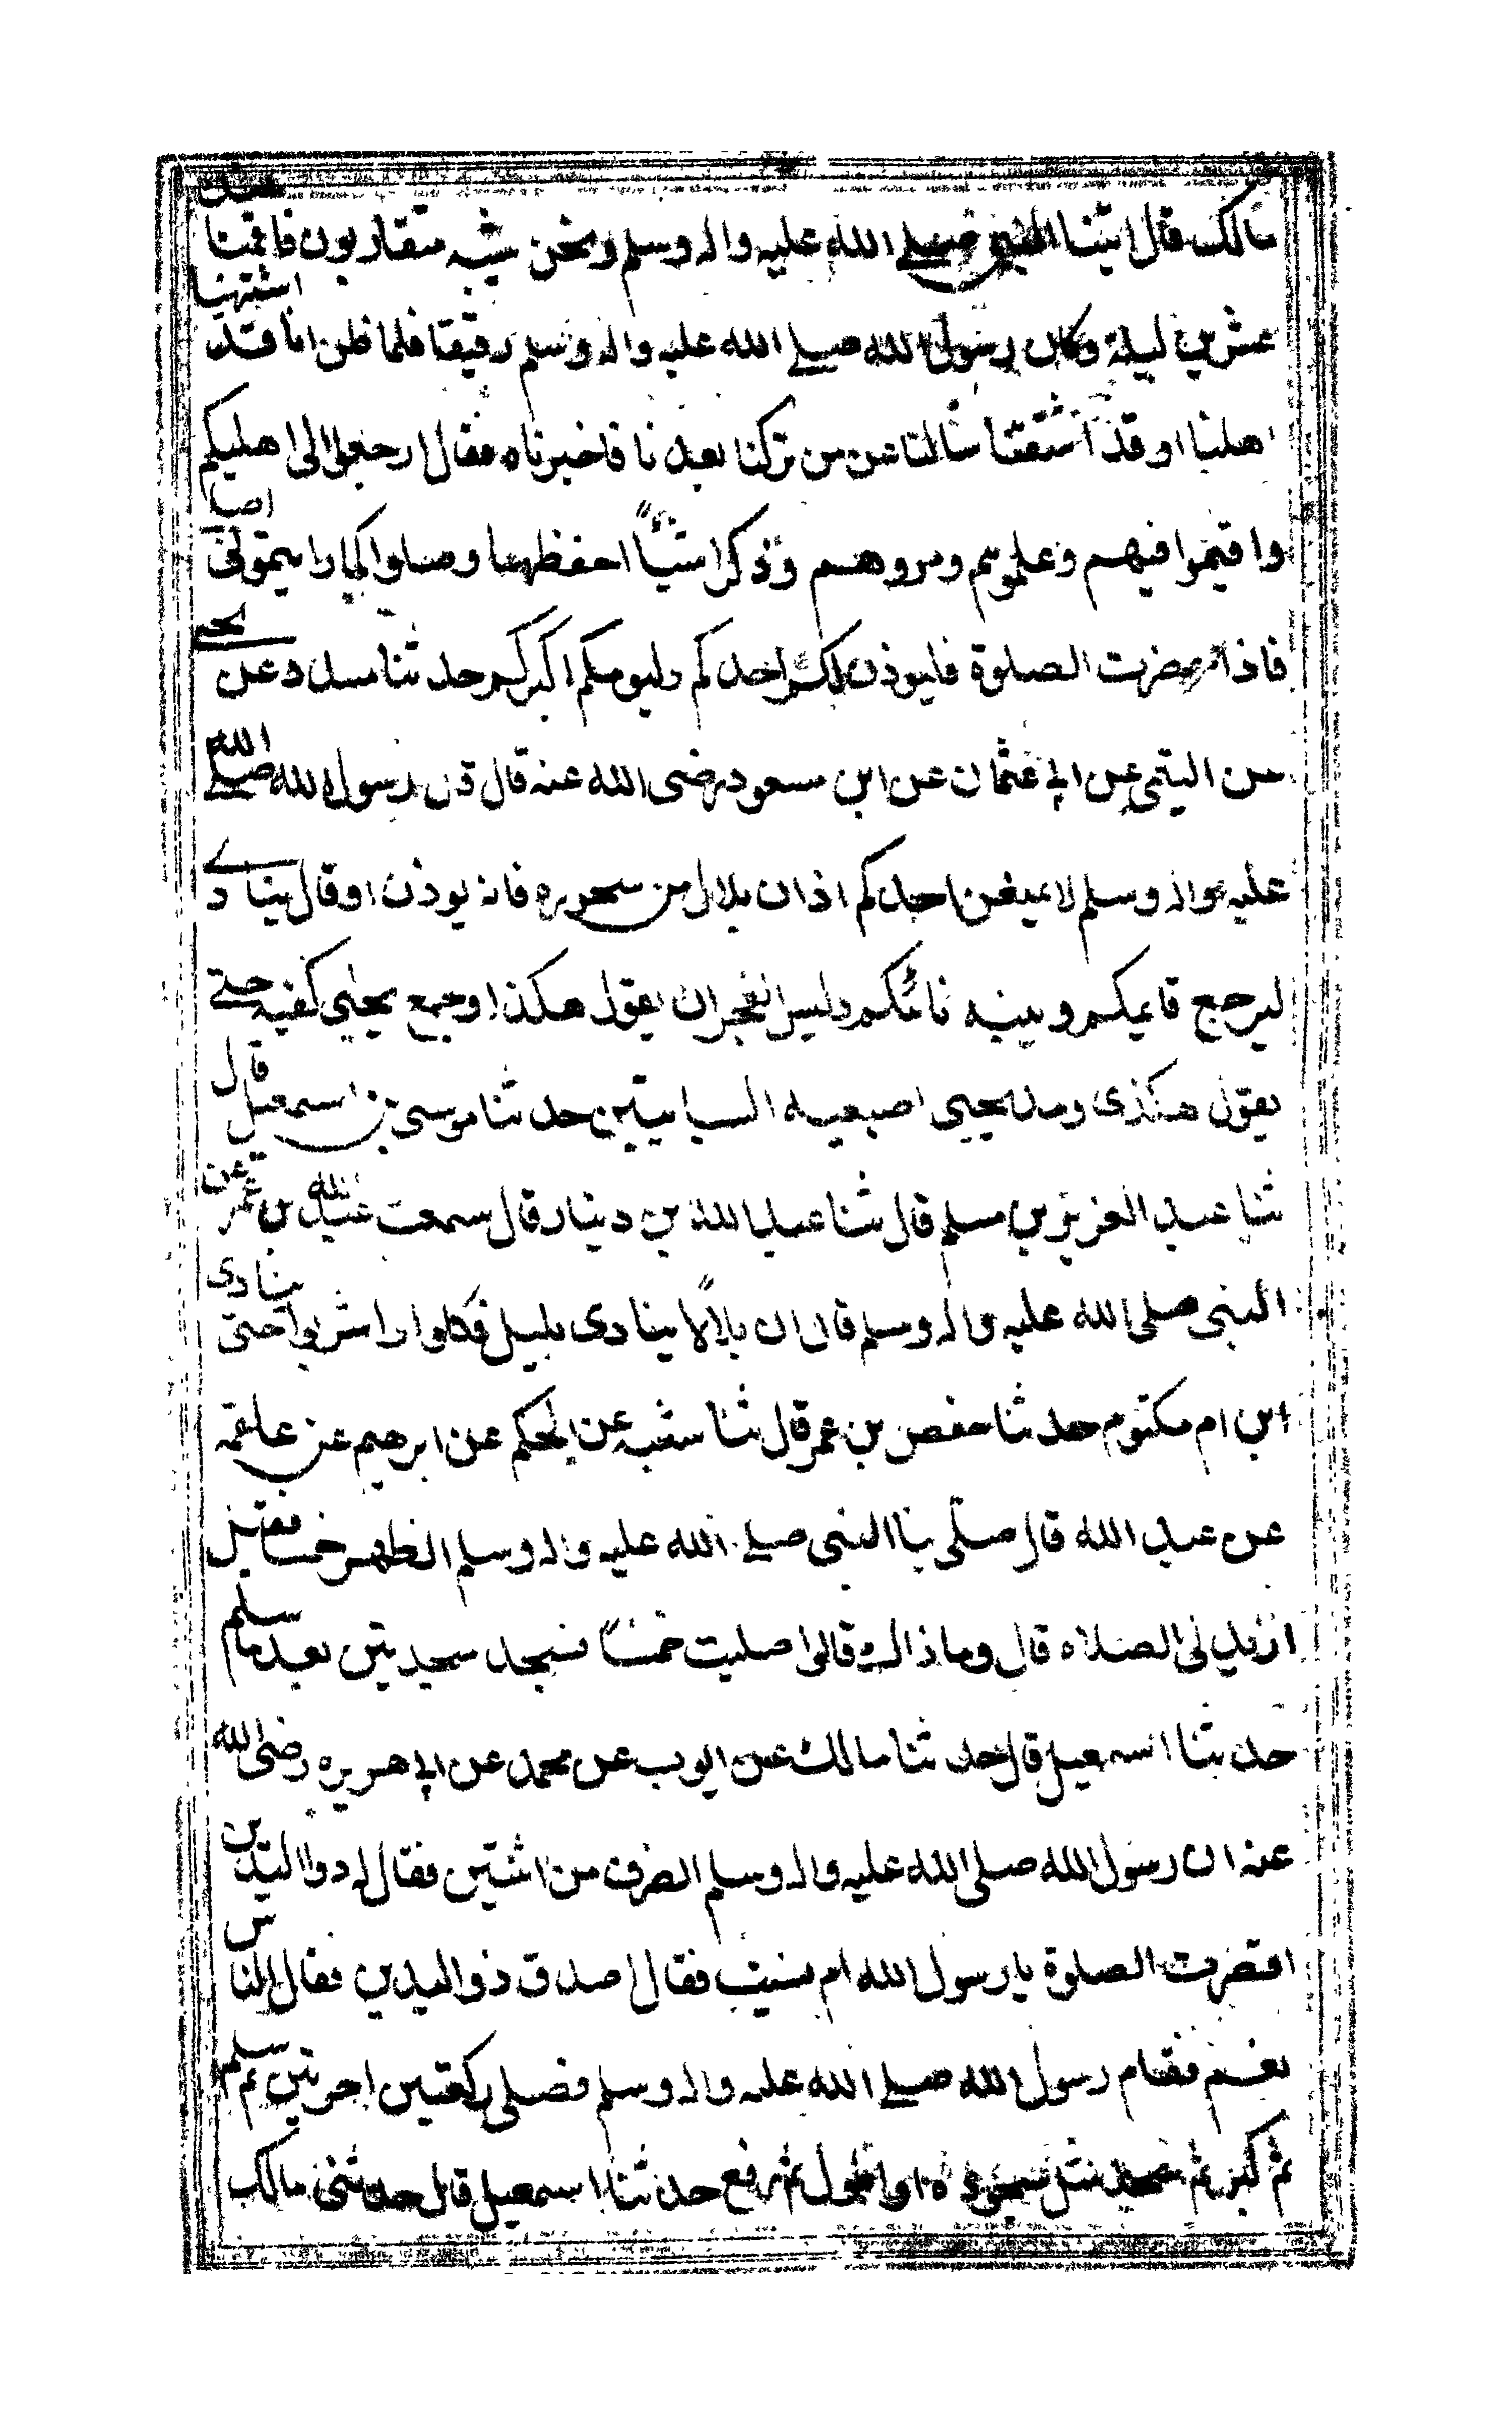 مالك قال اتينا النبى صلے الله عليه واله وسلم ونحن شيبه متقاربون فاقمنا عنده
عشرين ليلة وكان رسول الله صلے الله عليه واله وسلم رقيقا فلما ظن انا قد اشتهينا
اهلنا او قد اشتقنا سالنا عن من تركنا بعدنا فاخبرناه فقال ارجعوا الى اهليكم
واقيموا فيهم وعلموهم ومروهم وذكر اشيأً احفظها وصلوا كما رايتمونى اصلى
فاذا حضرت الصلوة فليوذن لكم احدكم وليومكم اكبركم حدثنا مسدد عن يحيے
عن التيمى عن ابى عثمان عن ابن مسعود رضى الله عنه قال قال رسول الله صلے الله
عليه واله وسلم لا يمنعن احدكم اذان بلال من سحوره فانه يوذن او قال ينادے
ليرجع قايمكم وينبه نائمكم وليس الفجر ان يقول هكذا وجمع يحيى كفيه حتے
يقول هكذى ومد يحيى اصبعيه السبابتين حدثنا موسى بن اسمعيل قال
ثنا عبد العزيز بن مسلم قال ثنا عبد الله بن دينار قال سمعت عبد الله بن عمر عن
النبى صلى الله عليه واله وسلم قال ان بلالًا ينادى بليل فكلوا واشربوا حتى ينادى
ابن ام مكتوم حدثنا حفص بن عمر قال ثنا شعبه عن الحكم عن ابرهيم عن علقمه
عن عبد الله قال صلى بنا النبى صلے الله عليه واله وسلم الظهر خمسا فقيل
ازيد فى الصلاه قال وما ذاك قالوا صليت خمسًا فسجد سجدتين بعد ما سلم
حدثنا اسمعيل قال حدثنا مالك عن ايوب عن محمد عن ابى هريره رضى الله
عنه ان رسول الله صلى الله عليه واله وسلم انصرف من اثنتين فقال له ذوا اليدين
اقصرت الصلوة يا رسول الله ام نسيت فقال اصدق ذو اليدين فقال الناس
نعم فقام رسول الله صلے الله عليه واله وسلم فصلى ركعتين اخريتين ثم سلم
ثم كبر ثم سجد مثل سجوده او اطول ثم رفع حدثنا اسمعيل قال حدثنى مالك